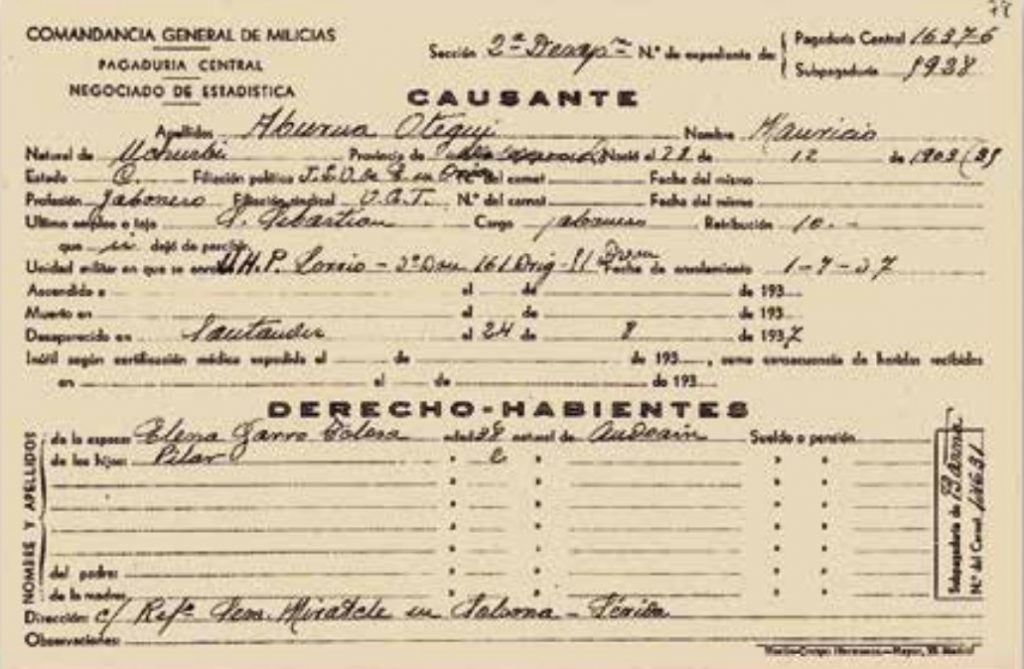 78
COMANDANCIA GENERAL DE MILICIAS
PAGADURIA CENTRAL
NEGOCIADO DE ESTADISTICA
Sección 2ª Desapⁿ N.º de expediente de: Pagaduria Central 16376
Subpagaduria 9938
CAUSANTE
Apellidos Aburua Otegui Nombre Mauricio
Natural de Provincia de Nació el 28 de 12 de 1903 (35
Estado C. Filiación política J.S.U. N.º del carnet Fecha del mismo
Profesión Jabonero Filiación sindical U.G.T. N.º del carnet Fecha del mismo
Ultimo empleo o tajo S. Sebastian Cargo jabonero Retribución 10.-
que si dejó de percibir
Unidad militar en que se enroló U.H.P. 161 Brig Fecha de enrolamiento 1-7-37
Ascendido a el de de 193
Muerto en el de de 193
Desaparecido en Santander el 24 de 8 de 1937
Inútil según certificación médica expedida el de de 193 , como consecuencia de heridas recibidas
en el de de 193
DERECHO-HABIENTES
NOMBRE Y APELLIDOS
de la esposa: Elena Zarro Tolosa edad 38 natural de Andoain Sueldo o pensión
de los hijos: Pilar " 6 " " "
del padre:
de la madre:
Subpagaduria de Barna
N.º del Carnet
Dirección: c/ Refº Miratele en Solsona - Lérida
Observaciones: